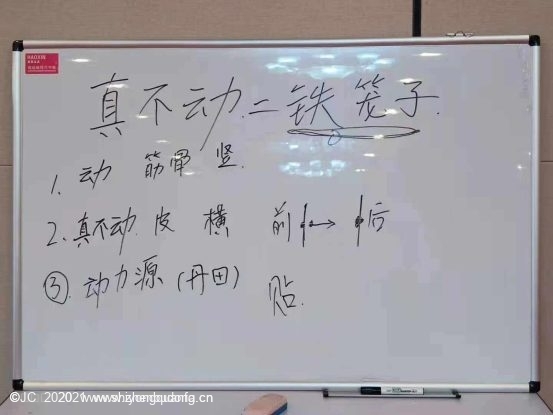 真不动=铁笼子.
1. 动 筋骨 竖.
2. 真不动. 皮 横 前 ↔ 后
③. 动力源 (丹田) 贴.
HAOXIN
©JC 202021